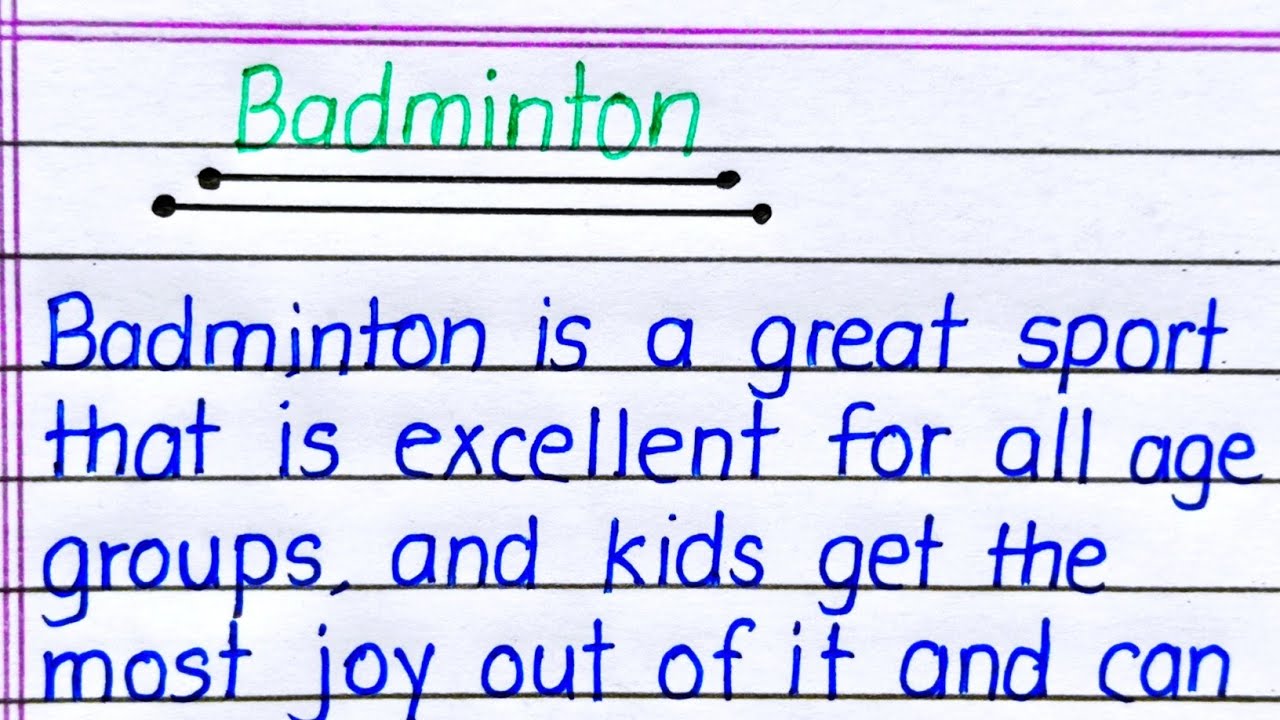 Badminton
Badminton is a great sport
that is excellent for all age
groups, and kids get the
most joy out of it and can